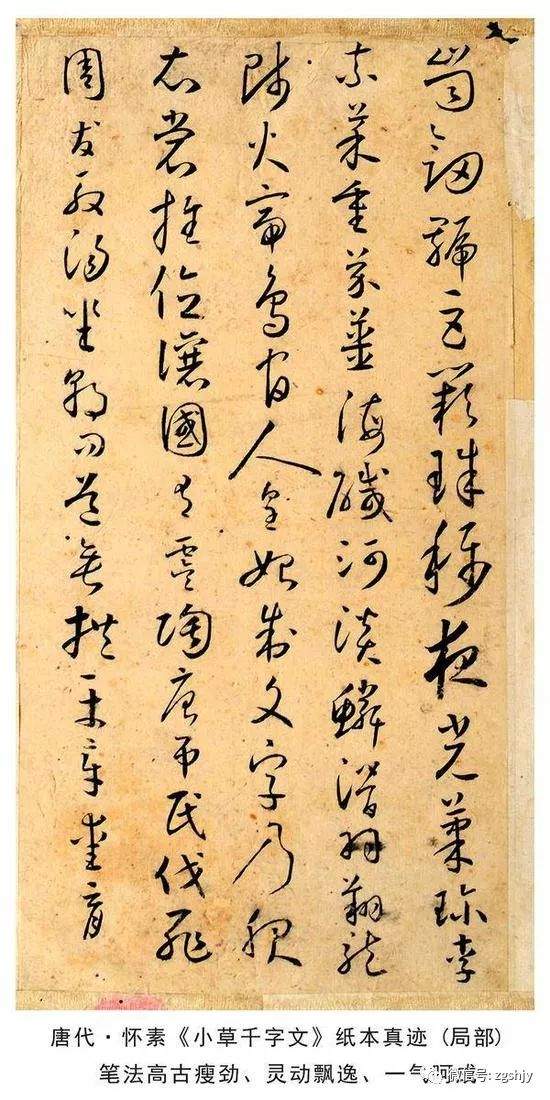 崗劍號巨闕珠稱夜光菓珍李
柰菜重芥薑海鹹河淡鱗潛羽翔龍
師火帝鳥官人皇始制文字乃服
衣裳推位讓國有虞陶唐弔民伐罪
周發殷湯坐朝問道垂拱平章愛育
唐代·怀素《小草千字文》纸本真迹 (局部)
笔法高古瘦劲、灵动飘逸、一气呵成
微信号: zgshjy